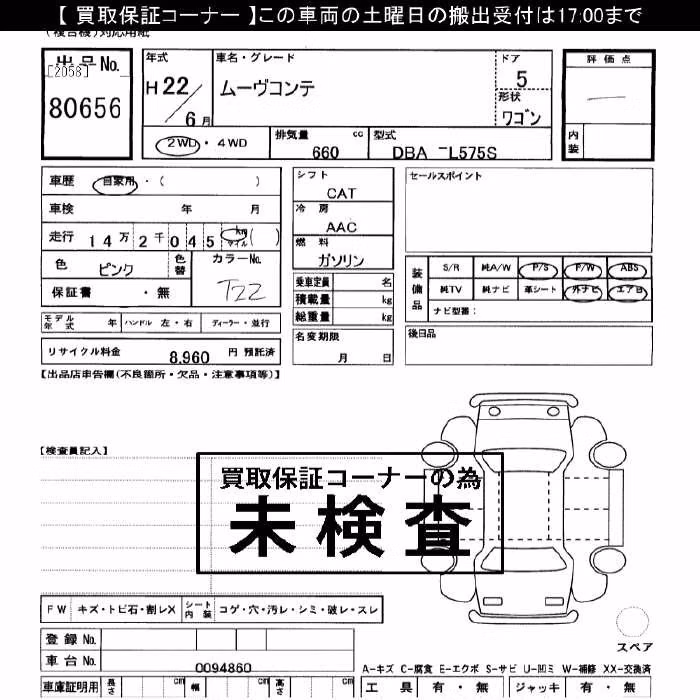 【 買取保証コーナー 】この車両の土曜日の搬出受付は17:00まで
(複合機)対応用紙
出品No.
[2058]
80656
年式
H 22/6月
車名・グレード
ムーヴコンテ
ドア
5
形状
ワゴン
評価点
内装
2WD ・ 4WD
排気量 cc
660
型式
DBA -L575S
車歴 自家用・( )
車検 年 月
走行 14万2千045 km マイル ( )
色 ピンク
色替
カラーNo.
T22
保証書 ・無
シフト
CAT
冷房
AAC
燃料
ガソリン
乗車定員 名
積載量 kg
総重量 kg
セールスポイント
装備品
S/R 純A/W P/S P/W ABS
純TV 純ナビ 革シート 外ナビ エアB
ナビ型番:
モデル年式 年 ハンドル 左・右 ディーラー・並行
名変期限
月 日
後日品
リサイクル料金 8,960 円 預託済
【出品店申告欄(不良箇所・欠品・注意事項等)】
【検査員記入】
買取保証コーナーの為
未検査
FW キズ・トビ石・割レX シート内装 コゲ・穴・汚レ・シミ・破レ・スレ
登録No.
車台No. 0094860
スペア
A-キズ C-腐食 E-エクボ S-サビ U-凹ミ W-補修 XX-交換済
車庫証明用 長さ cm 幅 cm 高さ cm
工具 有・無 ジャッキ 有・無